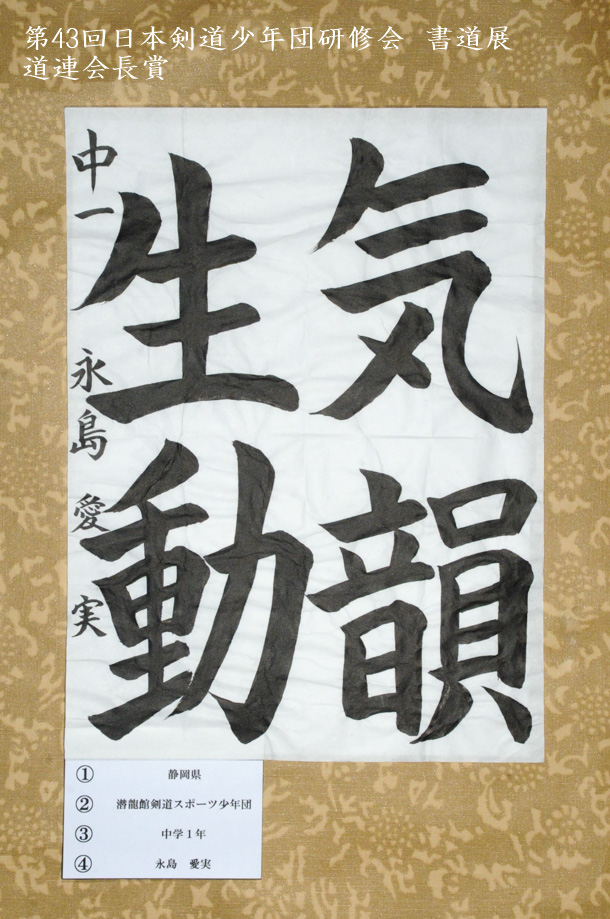 第43回日本剣道少年団研修会　書道展
道連会長賞
気韻
生動
中一　永島愛実
① 静岡県
② 潜龍館剣道スポーツ少年団
③ 中学１年
④ 永島　愛実